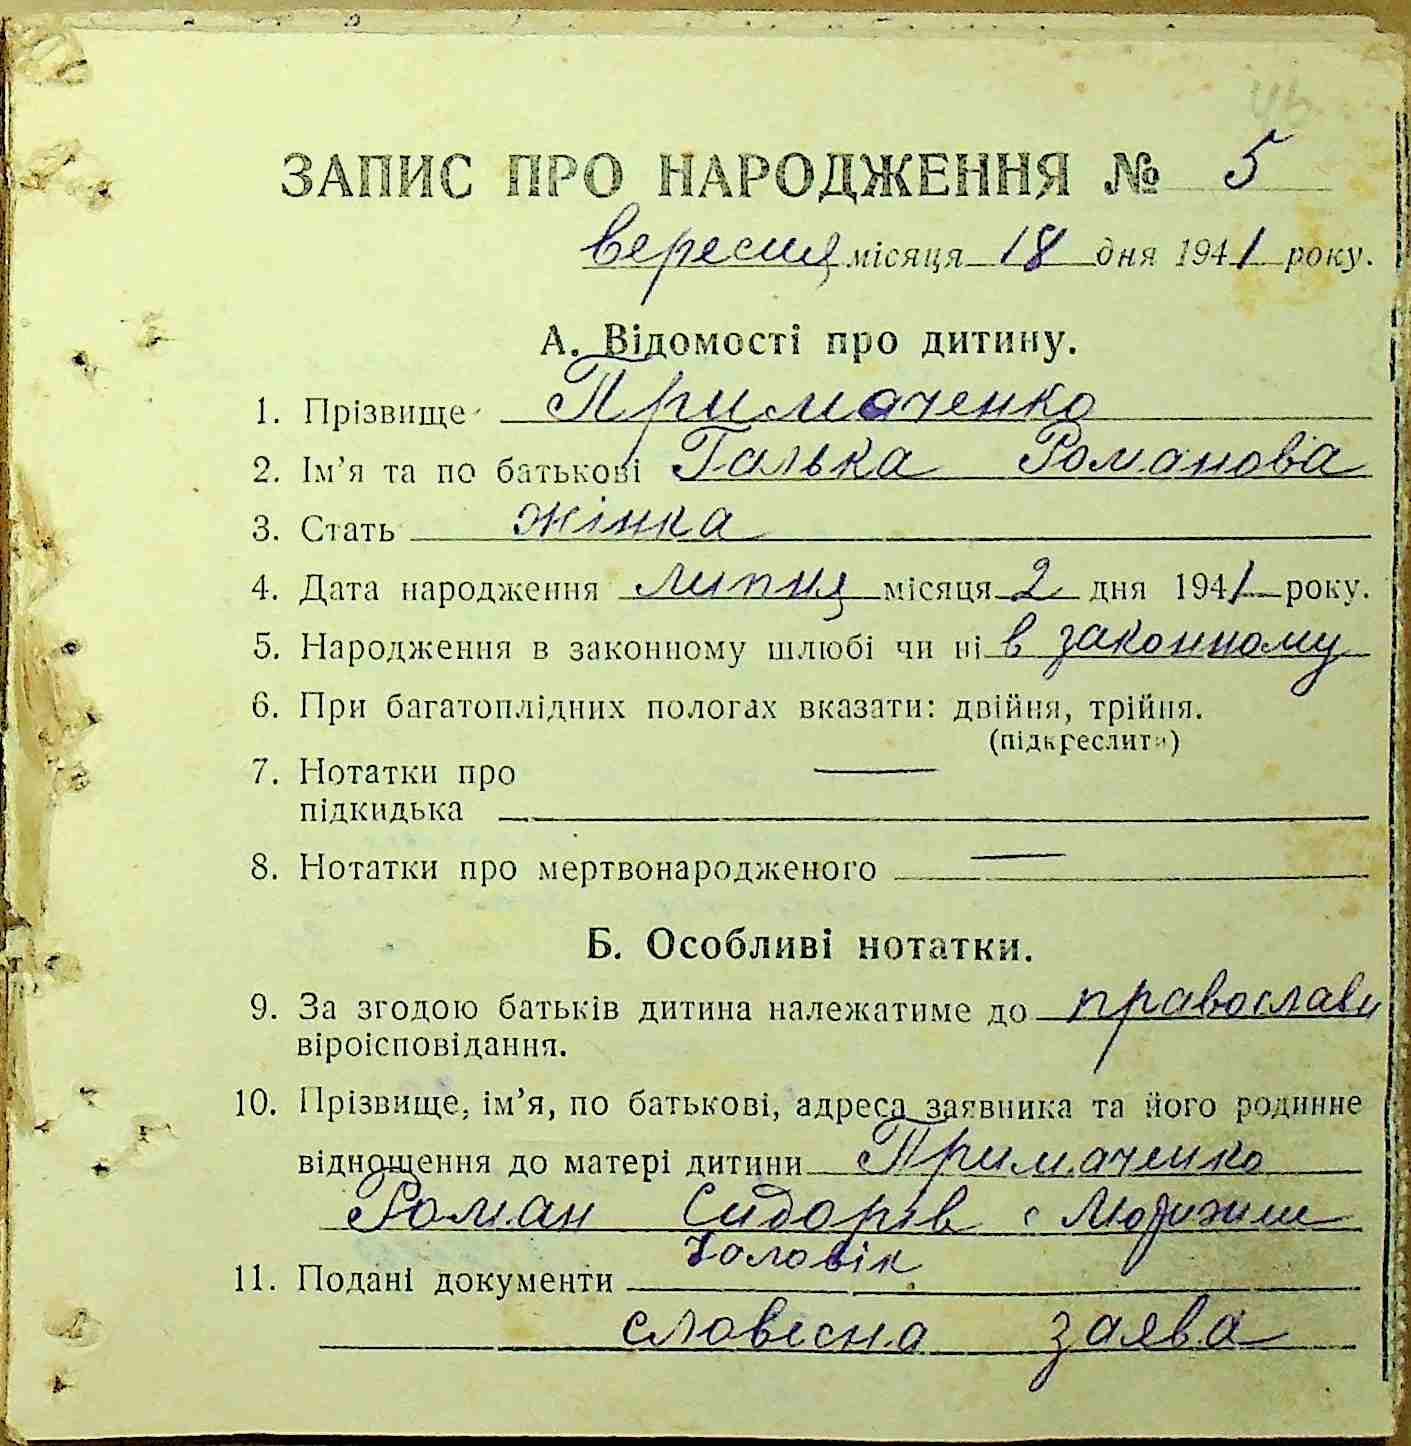 ЗАПИС ПРО НАРОДЖЕННЯ № 5
вересня місяця 18 дня 1941 року.
А. Відомості про дитину.
1. Прізвище Примаченко
2. Ім’я та по батькові Галька Романова
3. Стать жінка
4. Дата народження липня місяця 2 дня 1941 року.
5. Народження в законному шлюбі чи ні в законному
6. При багатоплідних пологах вказати: двійня, трійня.
(підкреслити)
7. Нотатки про
підкидька —
8. Нотатки про мертвонародженого —
Б. Особливі нотатки.
9. За згодою батьків дитина належатиме до православн
віроісповідання.
10. Прізвище, ім’я, по батькові, адреса заявника та його родинне
відношення до матері дитини Примаченко
Роман Сидорів с
чоловік
11. Подані документи
словесна заява